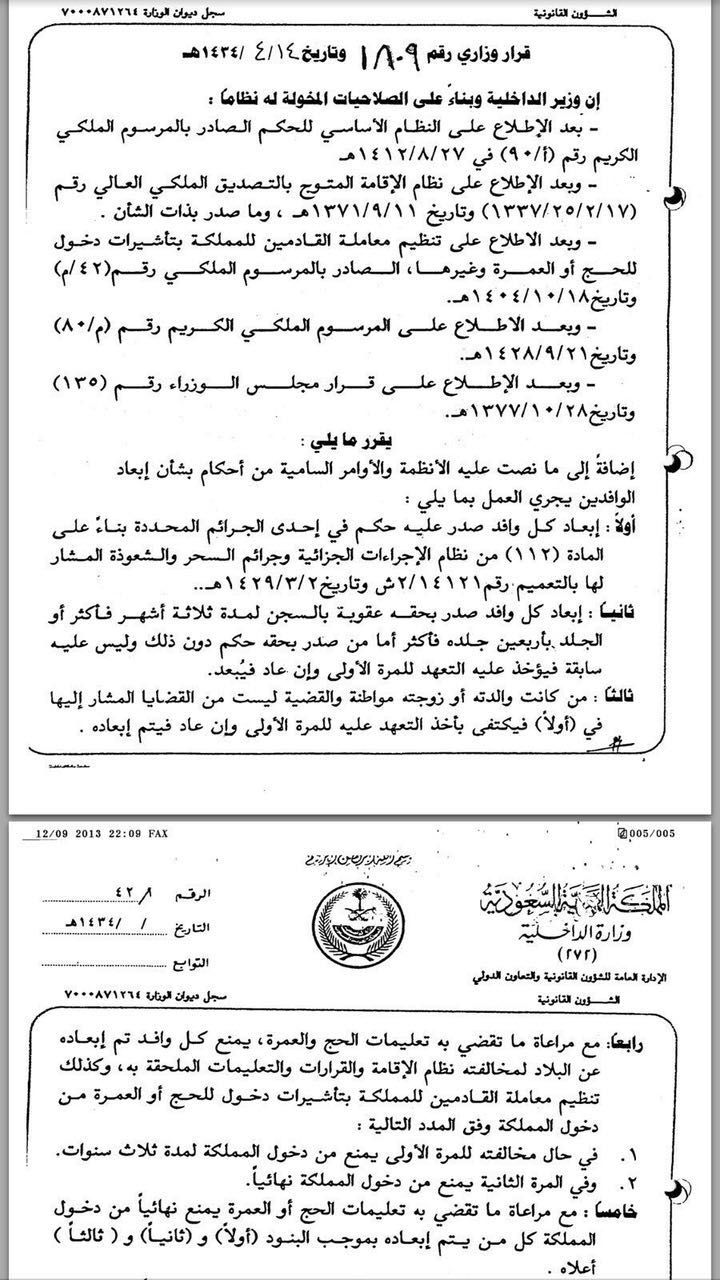 الشـــؤون القانونية
سجل ديوان الوزارة ٧٠٠٠٨٧١٢٦٤
قرار وزاري رقم ١٨٠٩ وتاريخ ٤/١٤/ ١٤٣٤هـ
إن وزير الداخلية وبناءً على الصلاحيات المخولة له نظاماً :
- بعد الإطلاع على النظام الأساسي للحكم الصادر بالمرسوم الملكي
الكريم رقم (أ/٩٠) في ١٤١٢/٨/٢٧هـ
- وبعد الإطلاع على نظام الإقامة المتوج بالتصديق الملكي العالي رقم
(١٣٣٧/٢٥/٢/١٧) وتاريخ ١٣٧١/٩/١١هـ ، وما صدر بذات الشأن .
- وبعد الاطلاع على تنظيم معاملة القادمين للمملكة بتأشيرات دخول
للحج أو العمرة وغيرهـا، الـصادر بالمرسوم الملكي رقـم(٤٢/م)
وتاريخ١٤٠٤/١٠/١٨هـ.
- وبعـــد الاطـــلاع علـــى المرســوم الملكـي الكــريم رقـــم (م/٨٠)
وتاريخ١٤٢٨/٩/٢١هـ.
- وبعـــد الإطـــلاع علـــى قـــرار مجلس الـــوزراء رقـــم (١٣٥)
وتاريخ١٣٧٧/١٠/٢٨هـ.
يقرر ما يلي :
إضافةً إلى ما نصت عليه الأنظمة والأوامر السامية من أحكام بشأن إبعاد
الوافدين يجري العمل بما يلي :
أولاً : إبعاد كل وافد صدر عليه حكم في إحدى الجرائم المحددة بناءً على
المادة (١١٢) من نظام الإجراءات الجزائية وجرائم السحر والشعوذة المشار
لها بالتعميم رقم٢/١٤١٢١ش وتاريخ١٤٢٩/٣/٢هـ..
ثانياً : إبعاد كل وافد صدر بحقه عقوبة بالسجن لمدة ثلاثة أشهر فأكثر أو
الجلد بأربعين جلده فأكثر أما من صدر بحقه حكم دون ذلك وليس عليه
سابقة فيؤخذ عليه التعهد للمرة الأولى وإن عاد فيُبعد.
ثالثاً : من كانت والدته أو زوجته مواطنة والقضية ليست من القضايا المشار إليها
في (أولاً) فيكتفى بأخذ التعهد عليه للمرة الأولى وإن عاد فيتم إبعاده .
12/09 2013 22:09 FAX
005/005
المملكة العربية السعودية
وزارة الداخلية
(٢٧٢)
الإدارة العامة للشؤون القانونية والتعاون الدولي
الشـــؤون القانونية
الرقم
التاريخ / / ١٤٣٤هـ
التوابع
سجل ديوان الوزارة ٧٠٠٠٨٧١٢٦٤
رابعاً: مع مراعاة ما تقضي به تعليمات الحج والعمرة، يمنع كل وافد تم إبعاده
عن البلاد لمخالفته نظام الإقامة والقرارات والتعليمات الملحقة به، وكذلك
تنظيم معاملة القادمين للمملكة بتأشيرات دخـول للحج أو العمرة من
دخول المملكة وفق المدد التالية :
١. في حال مخالفته للمرة الأولى يمنع من دخول المملكة لمدة ثلاث سنوات.
٢. وفي المرة الثانية يمنع من دخول المملكة نهائياً.
خامساً : مع مراعاة ما تقضي به تعليمات الحج أو العمرة يمنع نهائياً من دخول
المملكة كل من يتم إبعاده بموجب البنود (أولاً) و (ثانياً) و ( ثالثاً )
أعلاه .